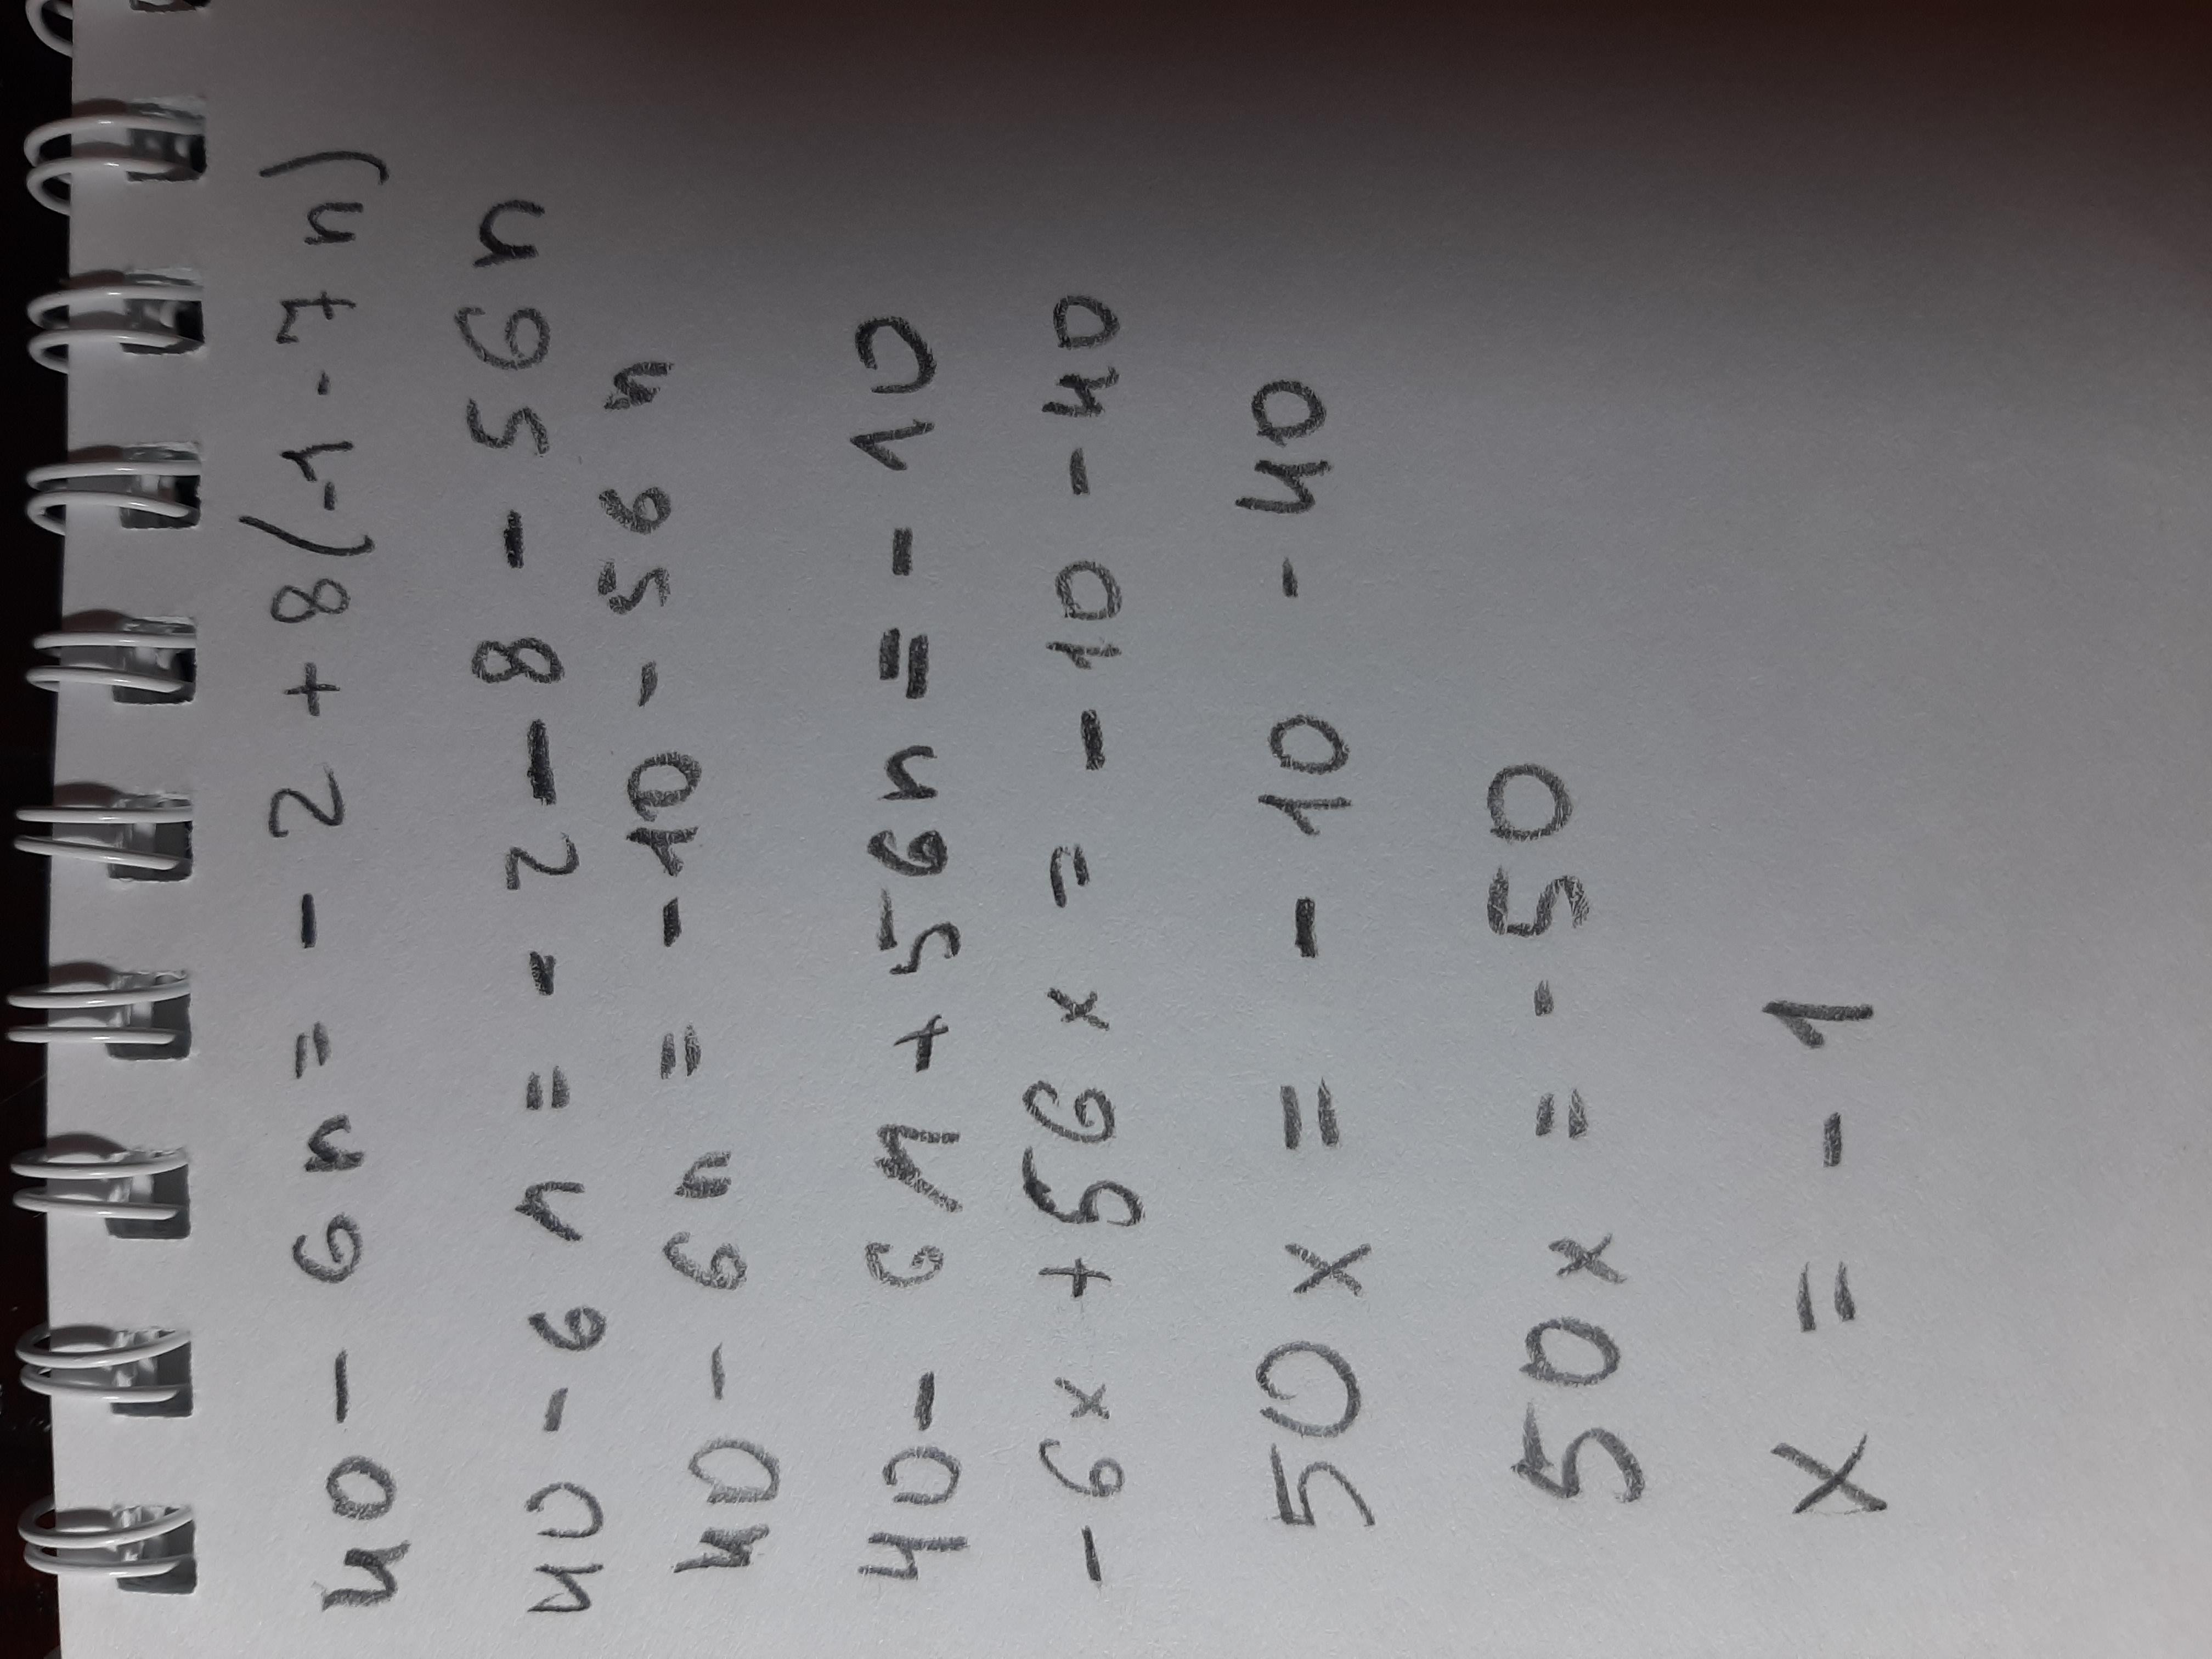 40 - 6n = - 2 + 8(-1 - 7n)
40 - 6n = - 2 - 8 - 56n
40 - 6n = - 10 - 56n
40 - 6n + 56n = - 10
- 6x + 56x = - 10 - 40
50x = - 10 - 40
50x = - 50
x = - 1